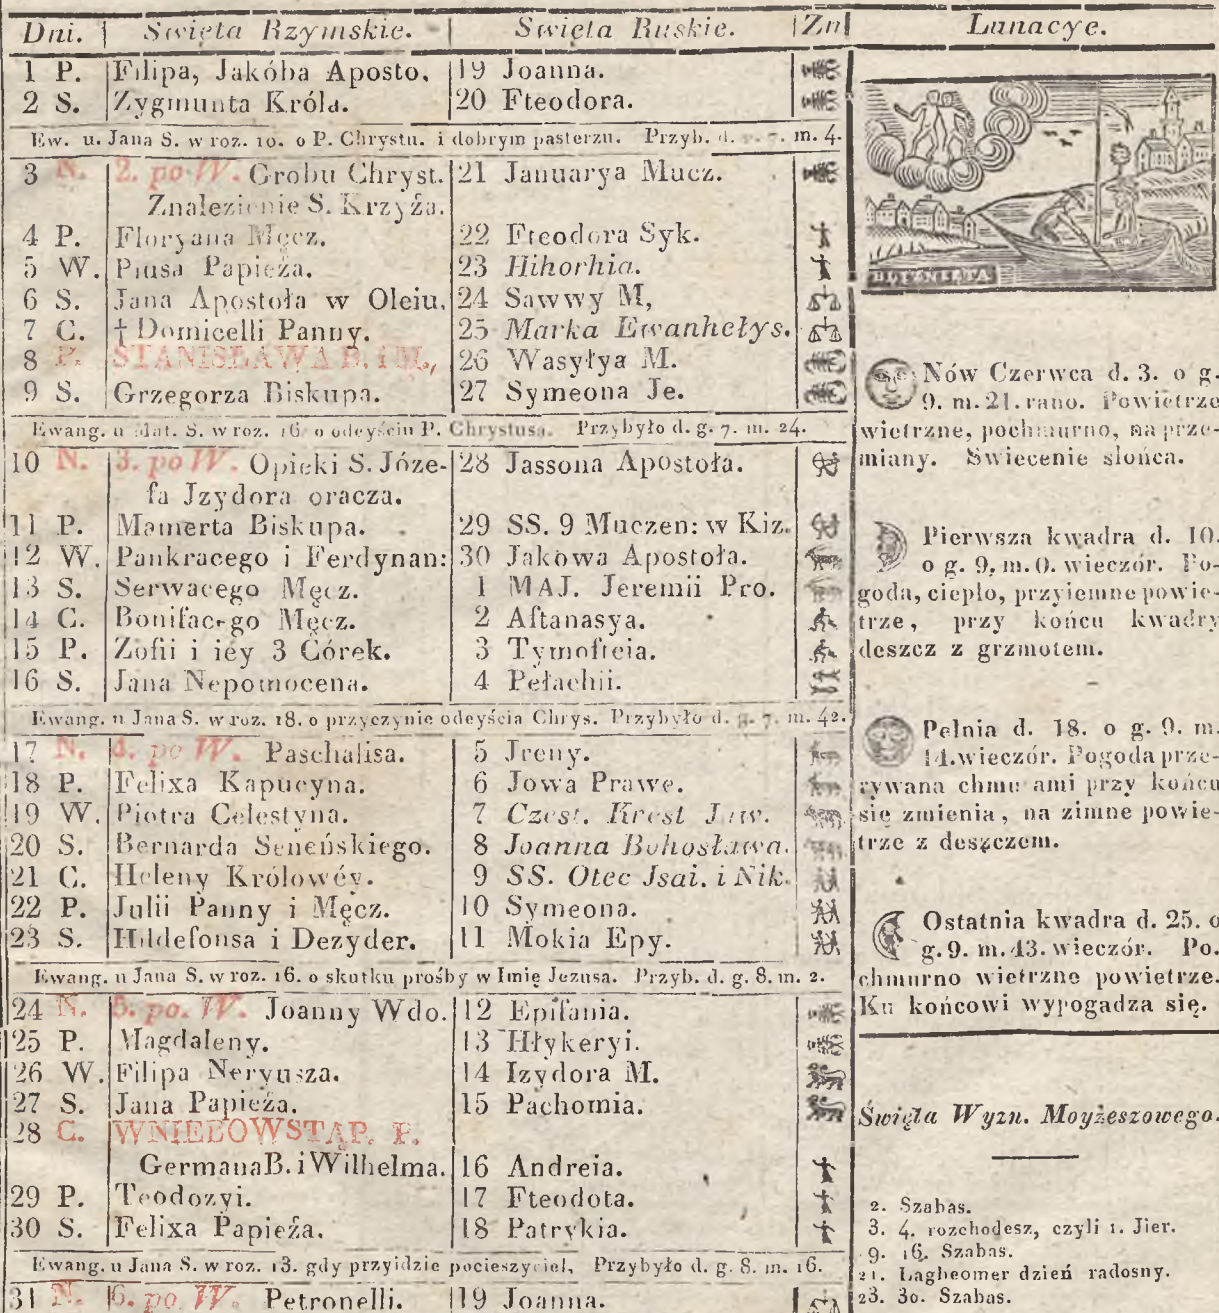 Dni. Święta Rzymskie. Święta Ruskie. Zn Lunacye.
1 P. Filipa, Jakóba Aposto, 19 Joanna.
2 S. Zygmunta Króla. 20 Fteodora.
Ew. u. Jana S. w roz. 10. o P. Chrystu. i dobrym pasterzu. Przyb. d. g. 7. m. 4.
3 N. 2. po W. Grobu Chryst. 21 Januarya Mucz.
Znalezienie S. Krzyża.
4 P. Floryana Męcz. 22 Fteodora Syk.
5 W. Piusa Papieża. 23 Hihorhia.
6 S. Jana Apostoła w Oleiu. 24 Sawwy M,
7 C. † Domicelli Panny. 25 Marka Ewanhełys.
8 P. STANISŁAWA B. i M., 26 Wasyłya M.
9 S. Grzegorza Biskupa. 27 Symeona Je.
Ewang. u Mat. S. w roz. 16. o odeyściu P. Chrystusa. Przybyło d. g. 7. m. 24.
10 N. 3. po W. Opieki S. Józe- 28 Jassona Apostoła.
fa Jzydora oracza.
11 P. Mamerta Biskupa. 29 SS. 9 Muczen: w Kiz.
12 W. Pankracego i Ferdynan: 30 Jakowa Apostoła.
13 S. Serwacego Męcz. 1 MAJ. Jeremii Pro.
14 C. Bonifacego Męcz. 2 Aftanasya.
15 P. Zofii i iéy 3 Córek. 3 Tymofteia.
16 S. Jana Nepomocena. 4 Pełachii.
Ewang. u Jana S. w roz. 18. o przyczynie odeyścia Chrys. Przybyło d. g. 7. m. 42.
17 N. 4. po W. Paschalisa. 5 Jreny.
18 P. Felixa Kapucyna. 6 Jowa Prawe.
19 W. Piotra Celestyna. 7 Czest. Krest Jaw.
20 S. Bernarda Seneńskiego. 8 Joanna Bohosława.
21 C. Heleny Królowéy. 9 SS. Otec Jsai. i Nik.
22 P. Julii Panny i Męcz. 10 Symeona.
23 S. Hildefonsa i Dezyder. 11 Mokia Epy.
Ewang. u Jana S. w roz. 16. o skutku prośby w Imię Jezusa. Przyb. d. g. 8. m. 2.
24 N. 5. po. W. Joanny Wdo. 12 Epifania.
25 P. Magdaleny. 13 Hłykeryi.
26 W. Filipa Neryusza. 14 Izydora M.
27 S. Jana Papieża. 15 Pachomia.
28 C. WNIEBOWSTĄP. P.
Germana B. i Wilhelma. 16 Andreia.
29 P. Teodozyi. 17 Fteodota.
30 S. Felixa Papieża. 18 Patrykia.
Ewang. u Jana S. w roz. 13. gdy przyidzie pocieszyciel, Przybyło d. g. 8. m. 16.
31 N. 6. po W. Petronelli. 19 Joanna.
Nów Czerwca d. 3. o g.
9. m. 21. rano. Powietrze
wietrzne, pochmurno, na prze-
miany. Swiecenie słońca.
Pierwsza kwadra d. 10.
o g. 9. m. 0. wieczór. Po-
goda, ciepło, przyiemne powie-
trze, przy końcu kwadry
deszcz z grzmotem.
Pełnia d. 18. o g. 9. m.
14. wieczór. Pogoda prze-
rywana chmurami przy końcu
się zmienia, na zimne powie-
trze z deszczem.
Ostatnia kwadra d. 25. o
g. 9. m. 43. wieczór. Po.
chmurno wietrzne powietrze.
Ku końcowi wypogadza się.
Święta Wyzn. Moyżeszowego.
2. Szabas.
3. 4. rozchodesz, czyli 1. Jier.
9. 16. Szabas.
21. Lagbeomer dzień radosny.
23. 30. Szabas.